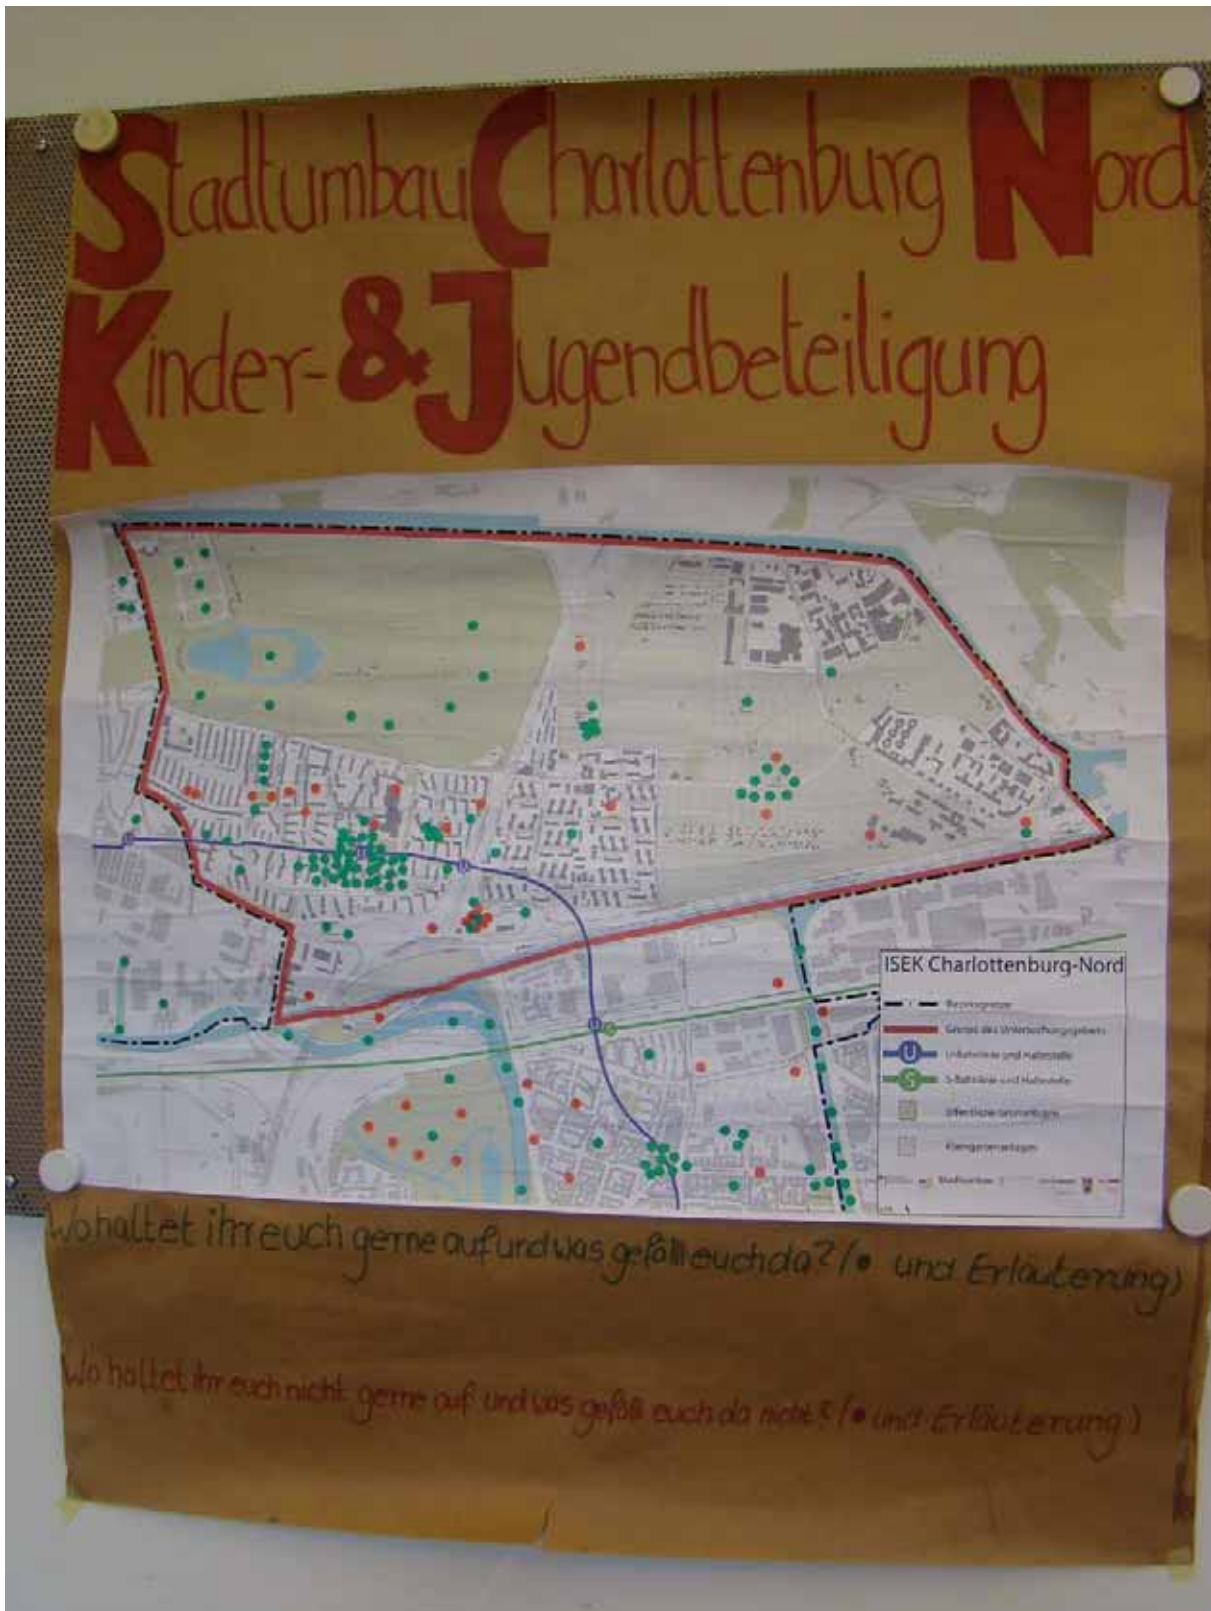 Stadtumbau Charlottenburg Nord
Kinder- & Jugendbeteiligung
ISEK Charlottenburg-Nord
Bezirksgrenze
Grenze des Untersuchungsgebiets
U U-Bahnlinie und Haltestelle
S S-Bahnlinie und Haltestelle
öffentliche Grünanlagen
Kleingartenanlagen
Wo haltet ihr euch gerne auf und was gefällt euch da? (• und Erläuterung)
Wo haltet ihr euch nicht gerne auf und was gefällt euch da nicht? (• und Erläuterung)